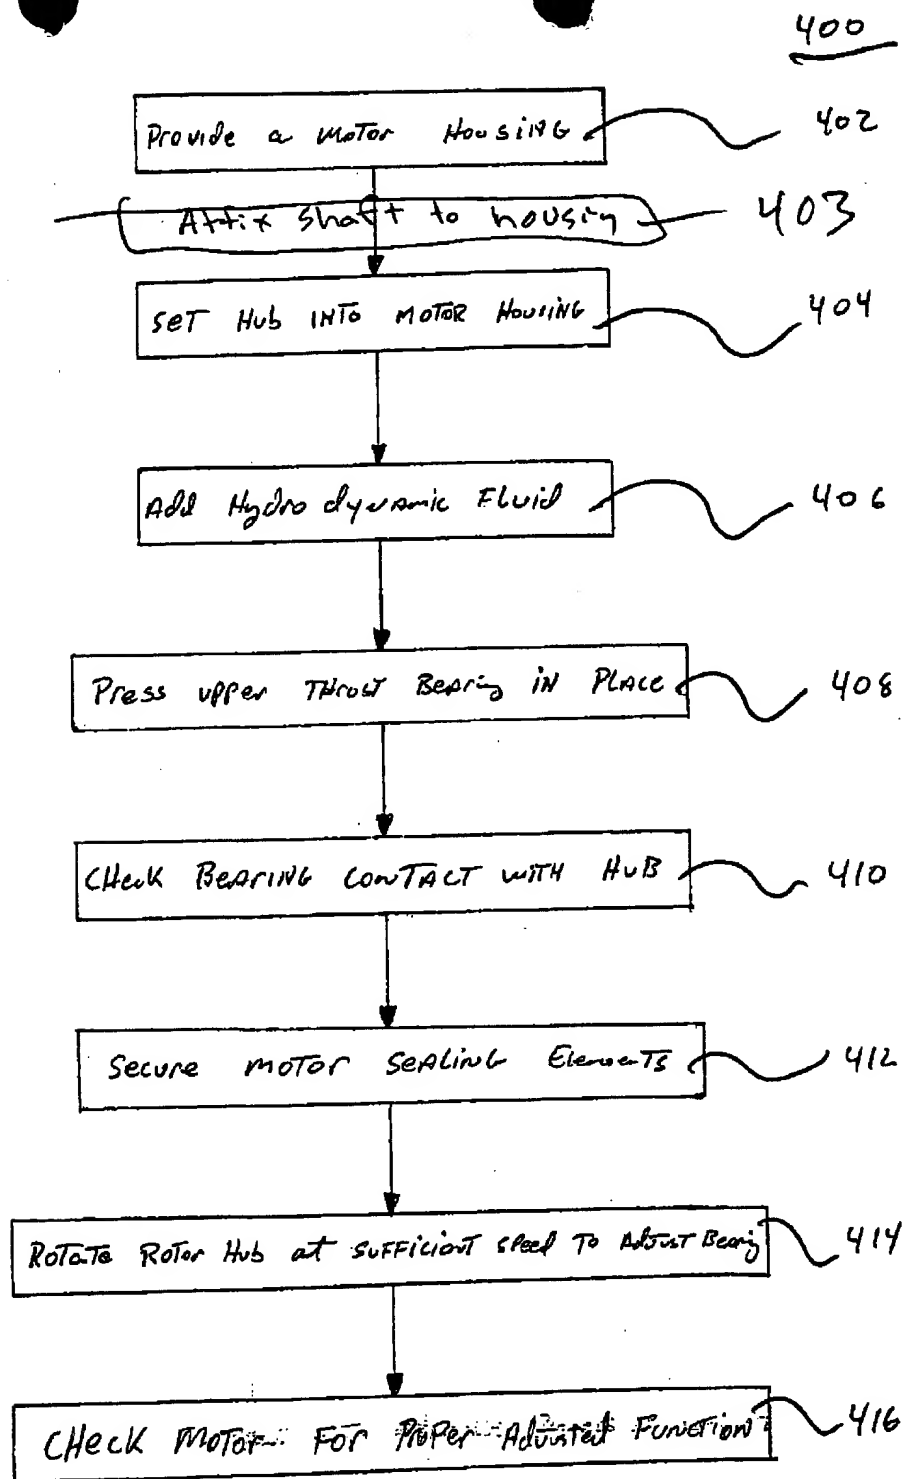 400
Provide a Motor Housing 402
Affix shaft to housing 403
Set Hub into Motor Housing 404
Add Hydrodynamic Fluid 406
Press upper Thrust Bearing in Place 408
Check Bearing Contact with Hub 410
Secure Motor Sealing Elements 412
Rotate Rotor Hub at sufficient speed to Adjust Bearing 414
Check Motor For Proper Adjusted Function 416